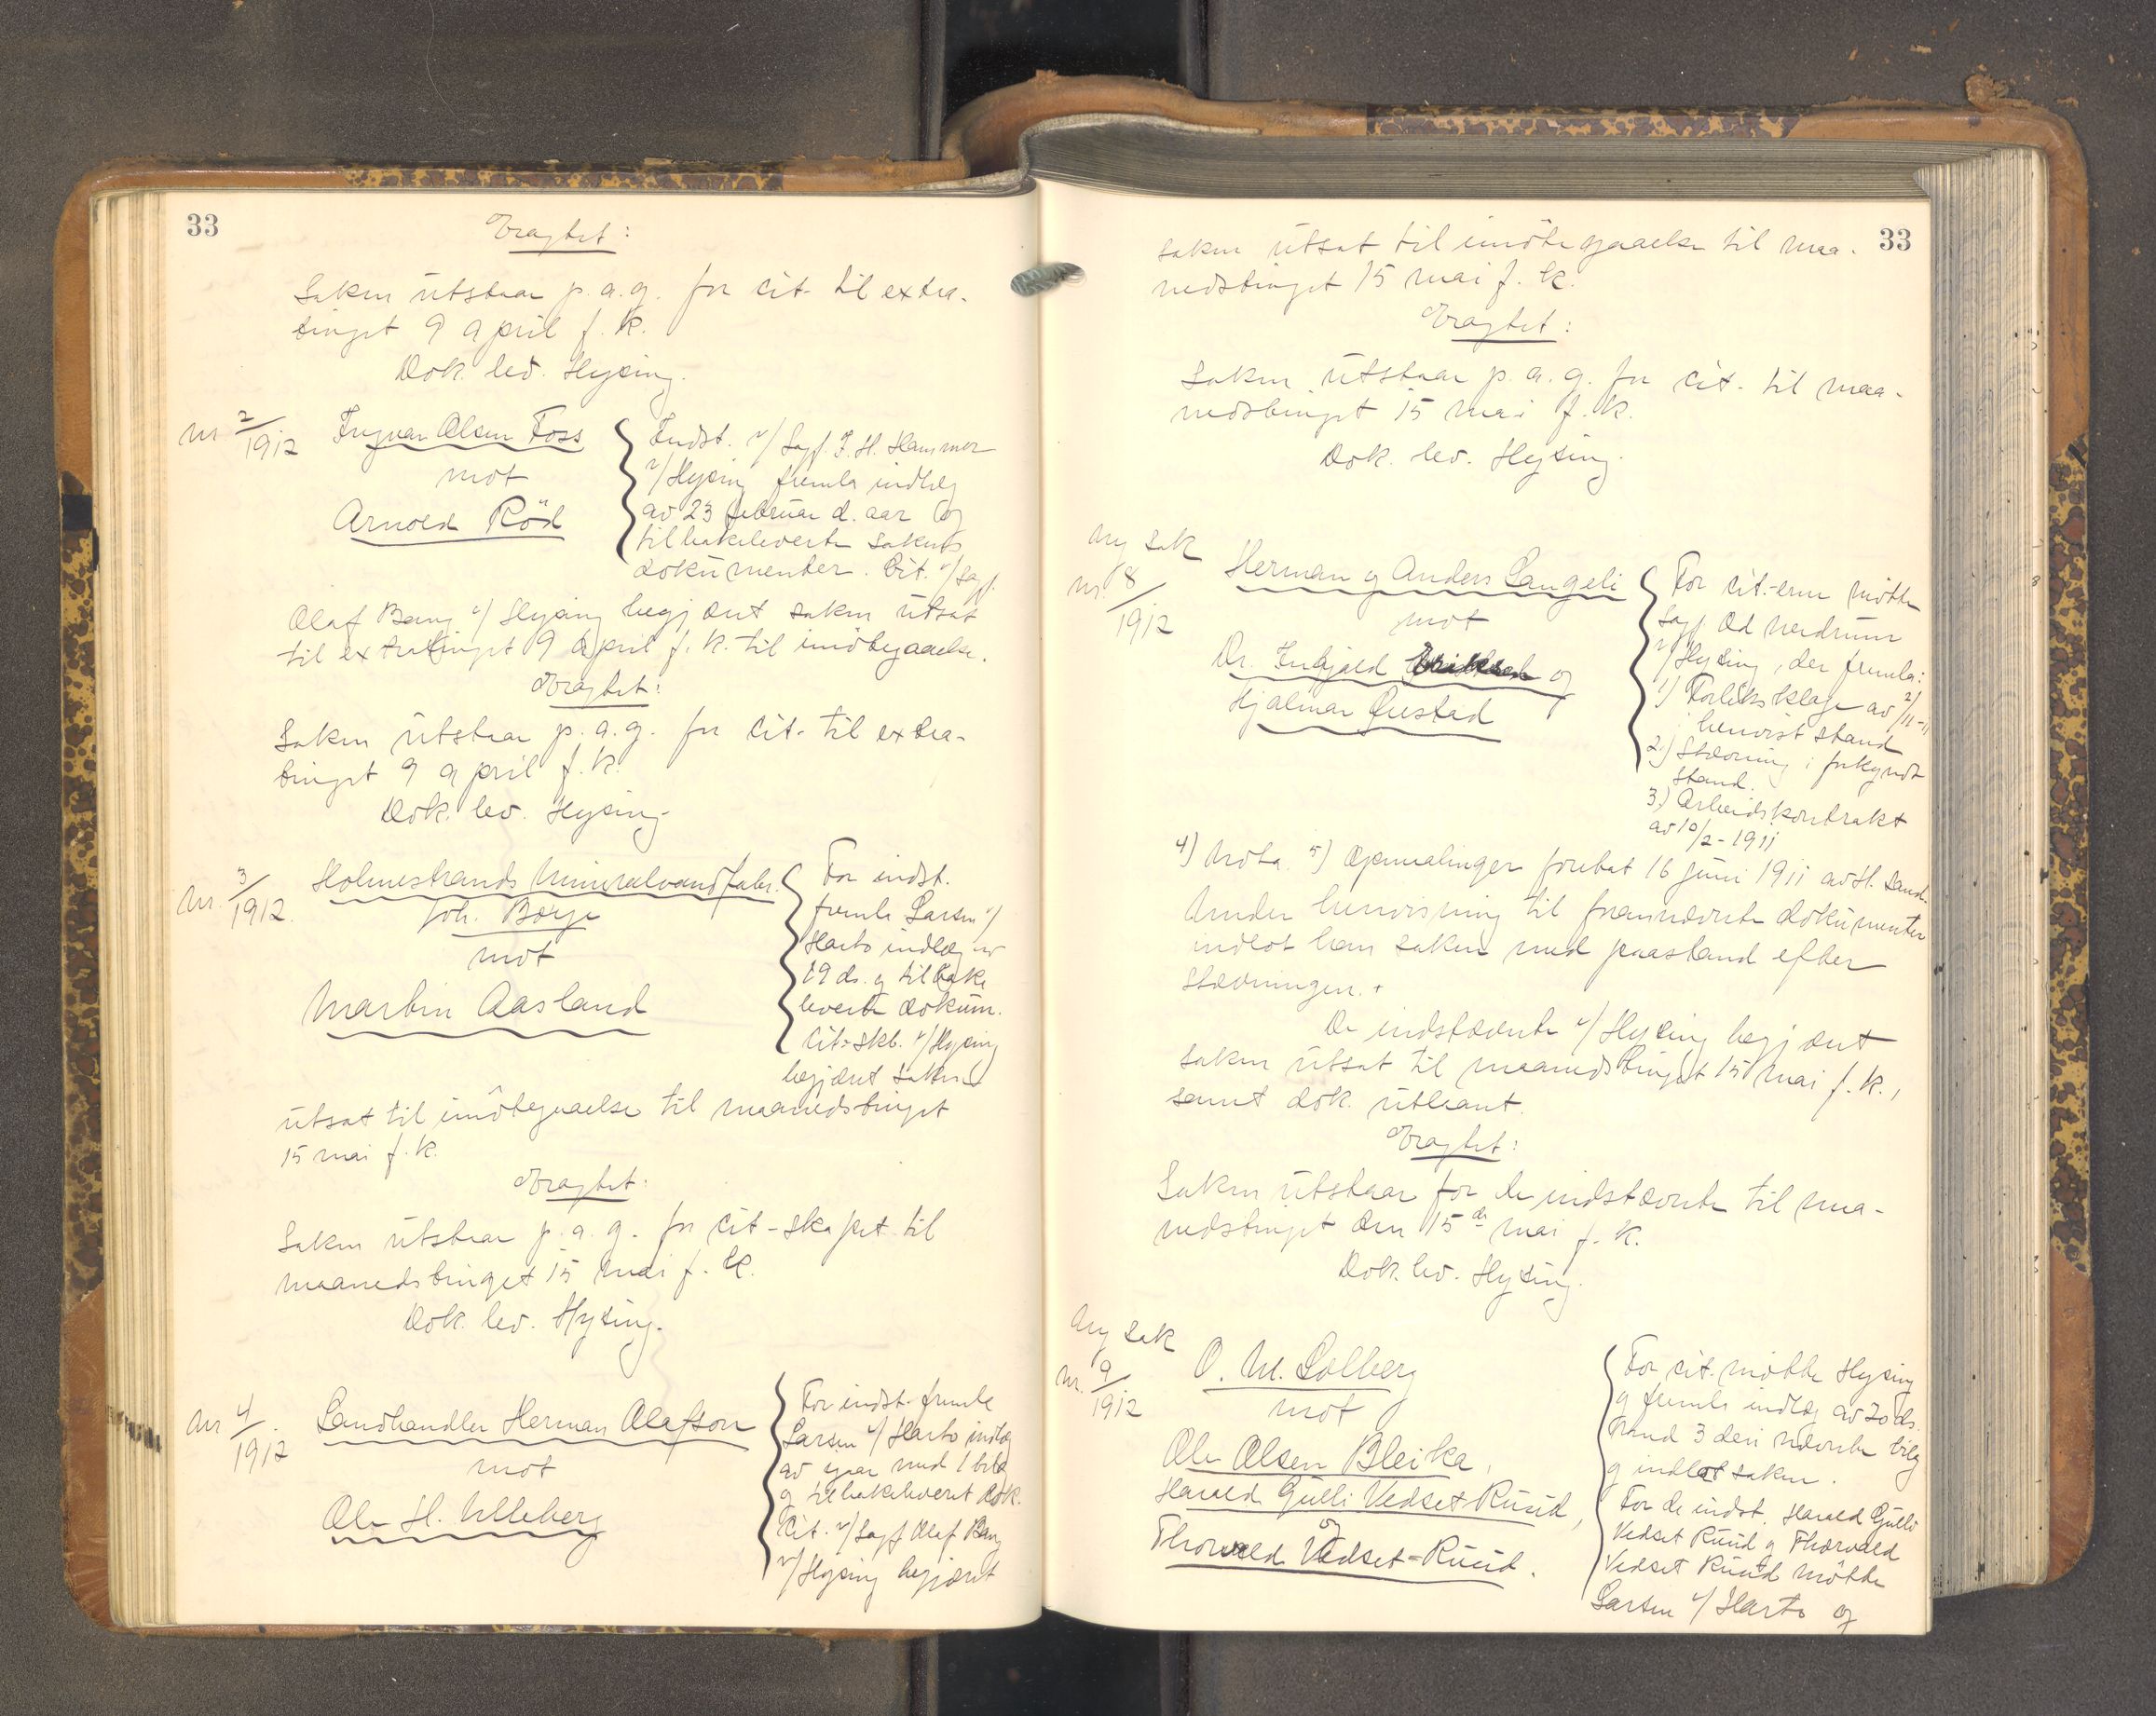 33
Eragtet:
Saken utstaar p.a.g. for cit. til extra-
tinget 9 april f.k.
Dok. lev. Hysing.
nr. 2/1912
Ingvar Olsen Foss
mot
Arnold Röd
Indst. v/ Sagf. F. H. Hammer
v/ Hysing fremla indlæg
av 23 februar d. aar og
tilbakeleverte sakens
dokumenter. Cit. v/ Sagf.
Olaf Bang v/ Hysing begjært saken utsat
til extratinget 9 april f.k. til imötegaaelse.
Eragtet:
Saken utstaar p.a.g. for cit. til extra-
tinget 9 april f.k.
Dok. lev. Hysing.
nr. 3/1912
Holmestrands Mineralvandfabr.
Joh. Borge
mot
Martin Aasland
For indst.
fremla Larsen v/
Harto indlæg av
19 ds. g tilbake
leverte dokum.
Cit-skb. v/ Hysing
begjært saken
utsat til imötegaaelse til maanedstinget
15 mai f.k.
Eragtet:
Saken utstaar p.a.g. for cit-skapet til
maanedstinget 15 mai f.k.
Dok. lev. Hysing.
nr 4/1912
Landhandler Herman Olafson
mot
Ole H. Ulleberg
For indst. fremla
Larsen v/ Harto indlæg
av igaar med 1 bilag
g tilbakeleveret dok.
Cit. v/ Sagf Olaf Bang
v/ Hysing begjært
33
saken utsat til imötegaaelse til maa-
nedstinget 15 mai f.k.
Eragtet:
Saken utstaar p.a.g. for cit. til maa-
nedstinget 15 mai f.k.
Dok. lev. Hysing.
Ny sak
nr. 8/1912
Herman g Anders Langeli
mot
Dr. Ingjald og
Hjalmar
For cit.-erne mötte
Sagf. Od Nerdrum
v/ Hysing, der fremla:
1) Forliksklage av 2/11-11
i henvist stand
2) Stævning i forkyndt
stand.
3) Arbeidskontrakt
av 10/2-1911
4) Nota. 5) Opmaalinger foretat 16 juni 1911 av H. Sand.
Under henvisning til forannævnte dokumenter
indlot han saken med paastand efter
stævningen.
De indstævnte v/ Hysing begjært
saken utsat til maanedstinget 15 mai f.k.,
samt dok. utlaant.
Eragtet:
Saken utstaar for de indstævnte til maa-
nedstinget den 15de mai f.k.
Dok. lev. Hysing.
Ny sak
nr. 9/1912
O. M. Solberg
mot
Ole Olsen Bleika,
Harald Gulli Vedset-Ruud,
og
Thorvald Vedset-Ruud.
For cit. mötte Hysing
g fremla indlæg av 20 ds.
med 3 deri nævnte bilag
g indlot saken.
For de indst. Harald Gulli
Vedset Ruud g Thorvald
Vedset Ruud mötte
Larsen v/ Harto og